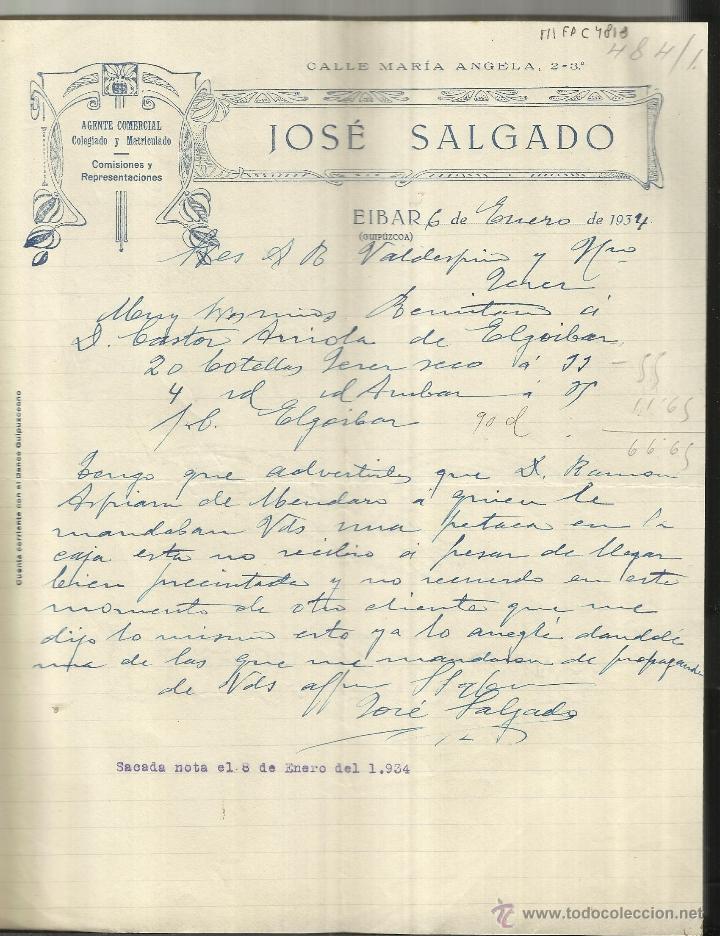 M FA C 4818
484/1
CALLE MARÍA ANGELA, 2-3º
AGENTE COMERCIAL
Colegiado y Matriculado
Comisiones y
Representaciones
JOSÉ SALGADO
EIBAR 6 de Enero de 1934
(GUIPÚZCOA)
Sres A R Valdespino y Hno
Jerez
Muy Remitan á
D. Castor Arriola de Elgoibar
20 botellas Jerez seco á 55
4 id id Ambar á
Elgoibar 90 d
11'65
66'65
Tengo que advertirles que D. Ramon
de Mendaro á quien le
mandaban Vds una petaca en la
caja esta no recibio á pesar de llegar
bien precintada y no recuerdo en este
momento de otro cliente que me
dijo lo mismo esto ya lo arreglé dandole
una de las que me mandaron de propaganda
de Vds affmo
José Salgado
Sacada nota el 8 de Enero del 1.934
Cuenta corriente con el Banco Guipuzcoano
www.todocoleccion.net